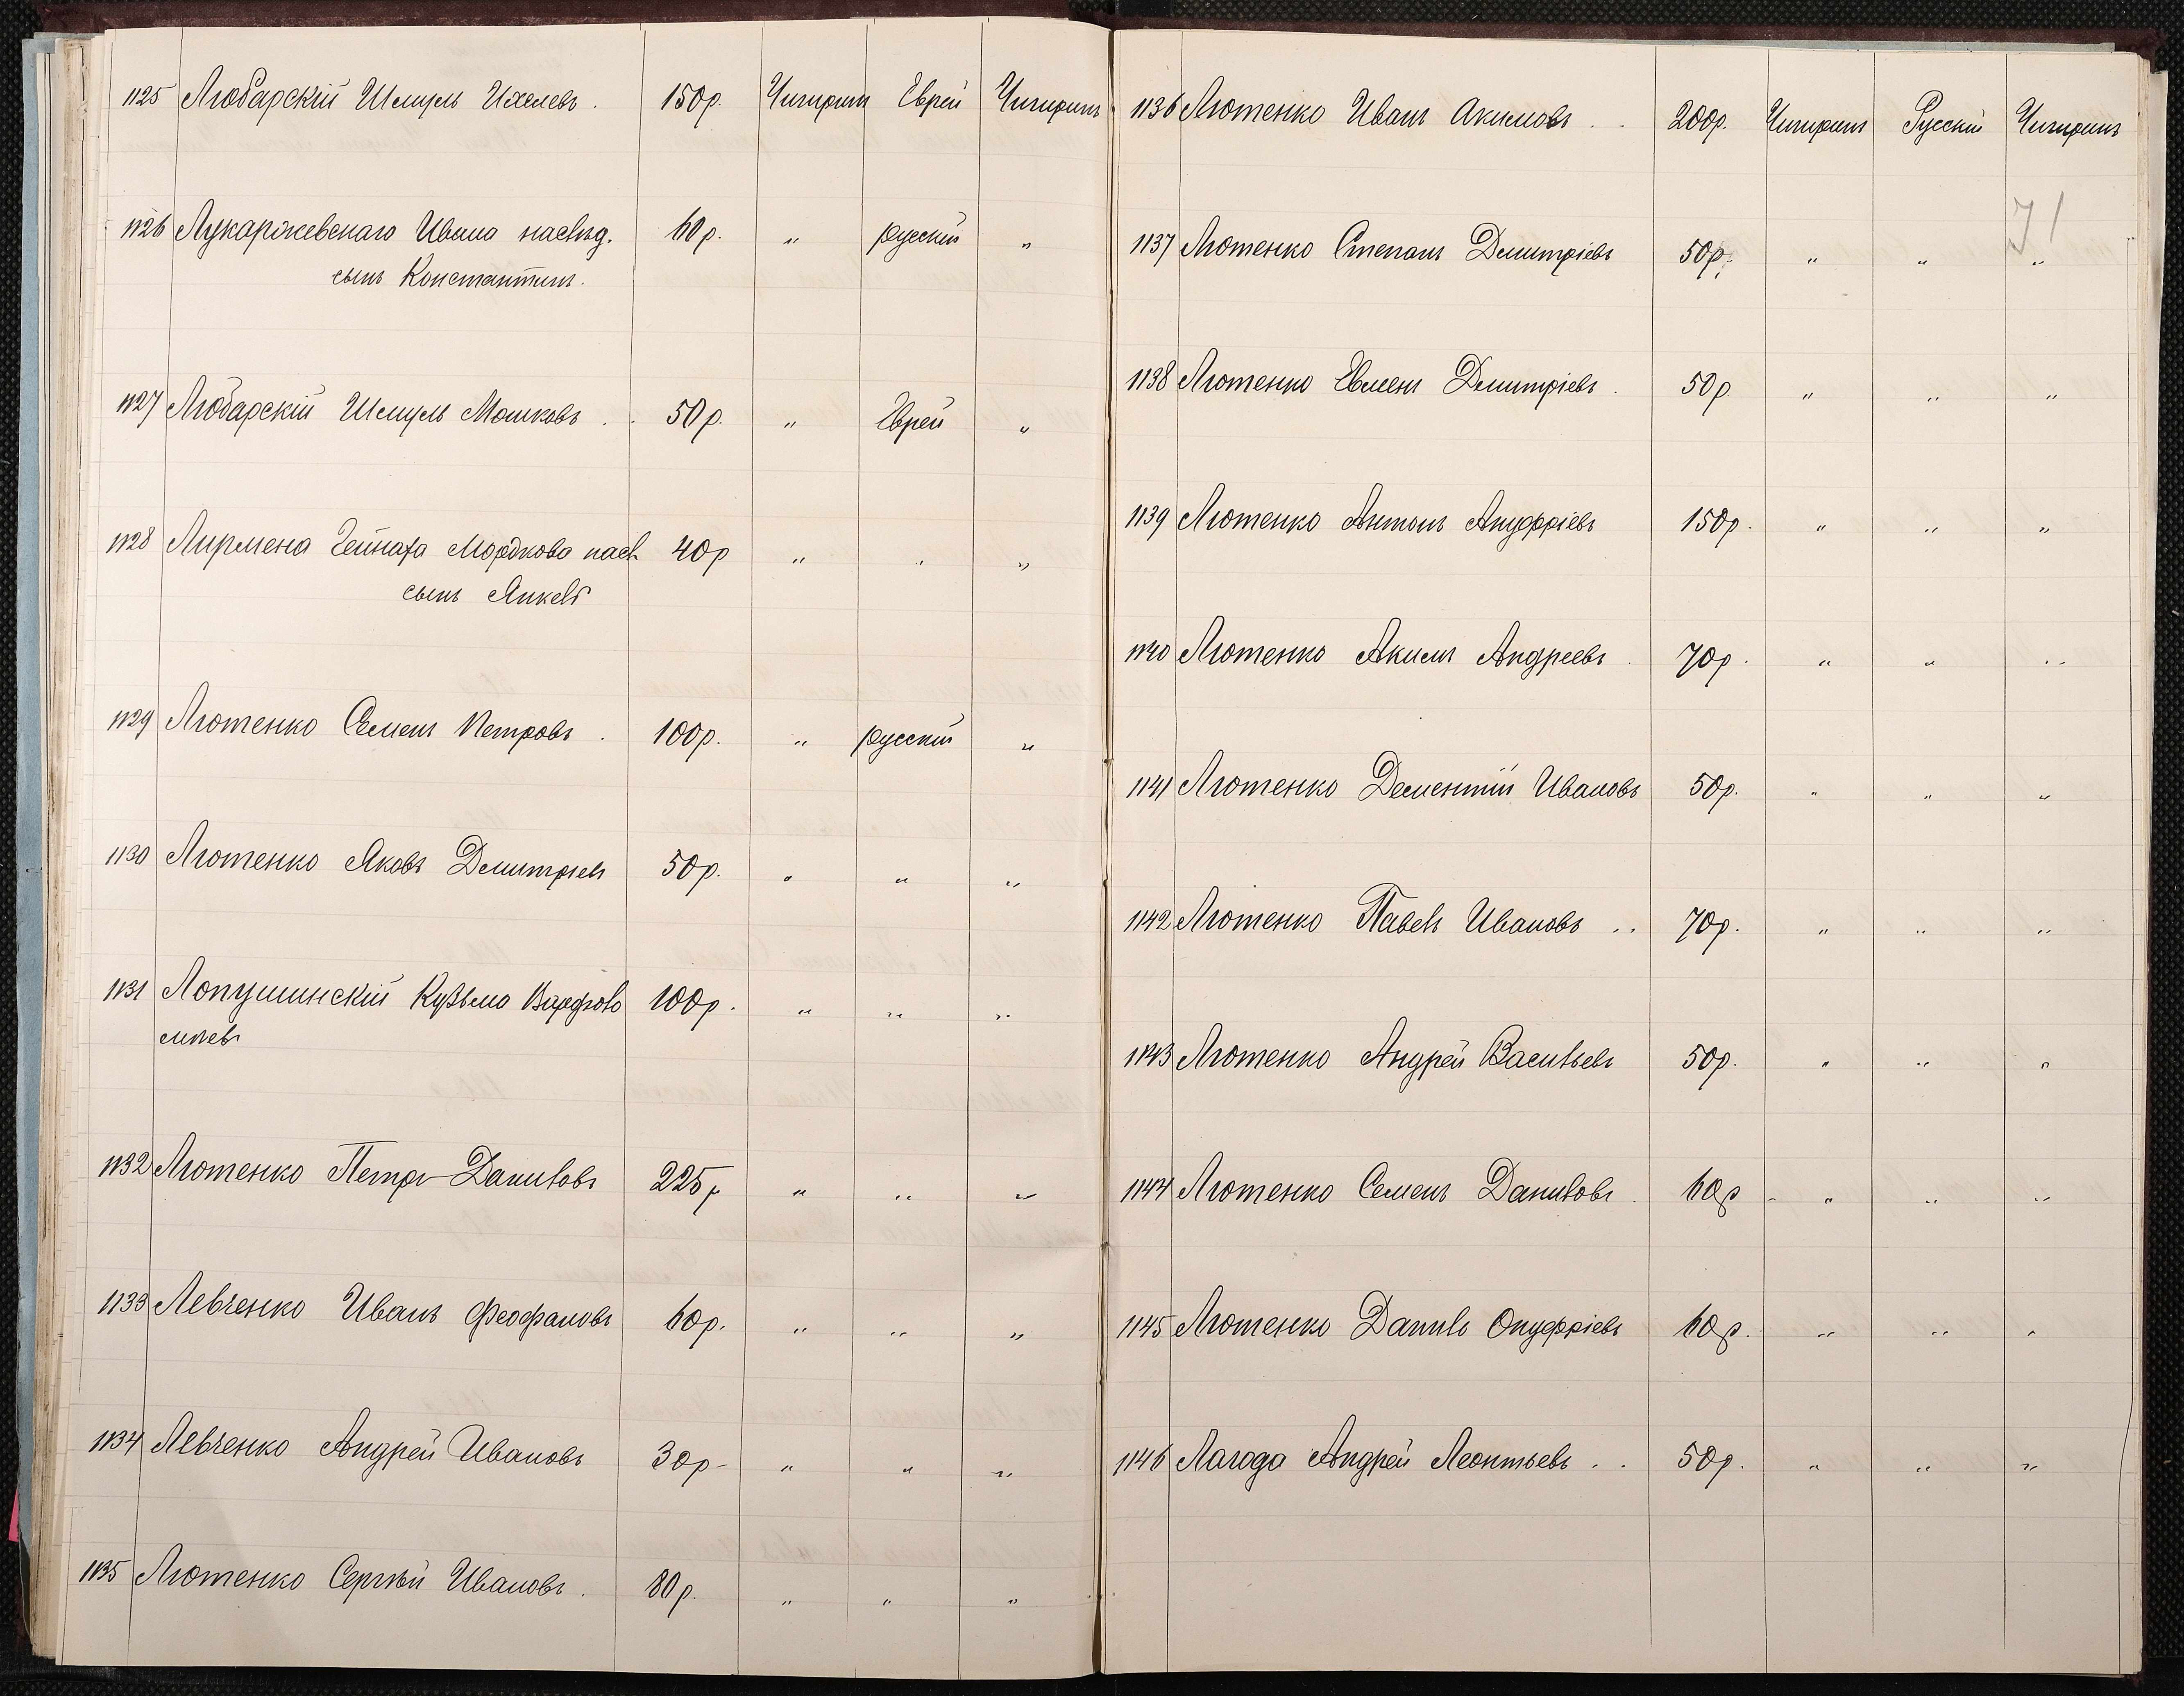 1125 Любарскій Шмуль Ихелевъ . 150р. Чигиринъ Еврей Чигиринъ
1126 Лукаржевскаго Ивана наслѣд. 60р. " русскій "
сынъ Константинъ.
1127 Любарскій Шмуль Мошковъ . . 50р. " Еврей "
1128 Лирмена Мордкова насл 40р " " "
сынъ Янкель
1129 Лютенко Семенъ Петровъ . 100р. " русскій "
1130 Лютенко Яковъ Дмитріев 50р. " " "
1131 Лопушинскій Кузьма Варфоло 100р. " " "
меевъ
1132 Лютенко Петръ Даниловъ 225р " " "
1133 Левченко Иванъ Феофановъ 60р. " " "
1134 Левченко Андрей Ивановъ 30р- " " "
1135 Лютенко Сергѣй Ивановъ . 80р. " " "
1136 Лютенко Иванъ Акимовъ . . 200р. Чигиринъ Русскій Чигиринъ
71
1137 Лютенко Степанъ Дмитріевъ 50р. " " "
1138 Лютенко Евменъ Дмитріевъ . 50р " " "
1139 Лютенко Антонъ Ануфріевъ 150р. " " "
1140 Лютенко Акимъ Андреевъ . 70р. " " "
1141 Лютенко Дементій Ивановъ 50р. " " "
1142 Лютенко Павелъ Ивановъ . . 70р. " " "
1143 Лютенко Андрей Васильевъ 50р. " " "
1144 Лютенко Семенъ Даниловъ . 60р - " " "
1145 Лютенко Данило Онуфріевъ 60р. " " "
1146 Лагода Андрей Леонтьевъ . . 50р. " " "